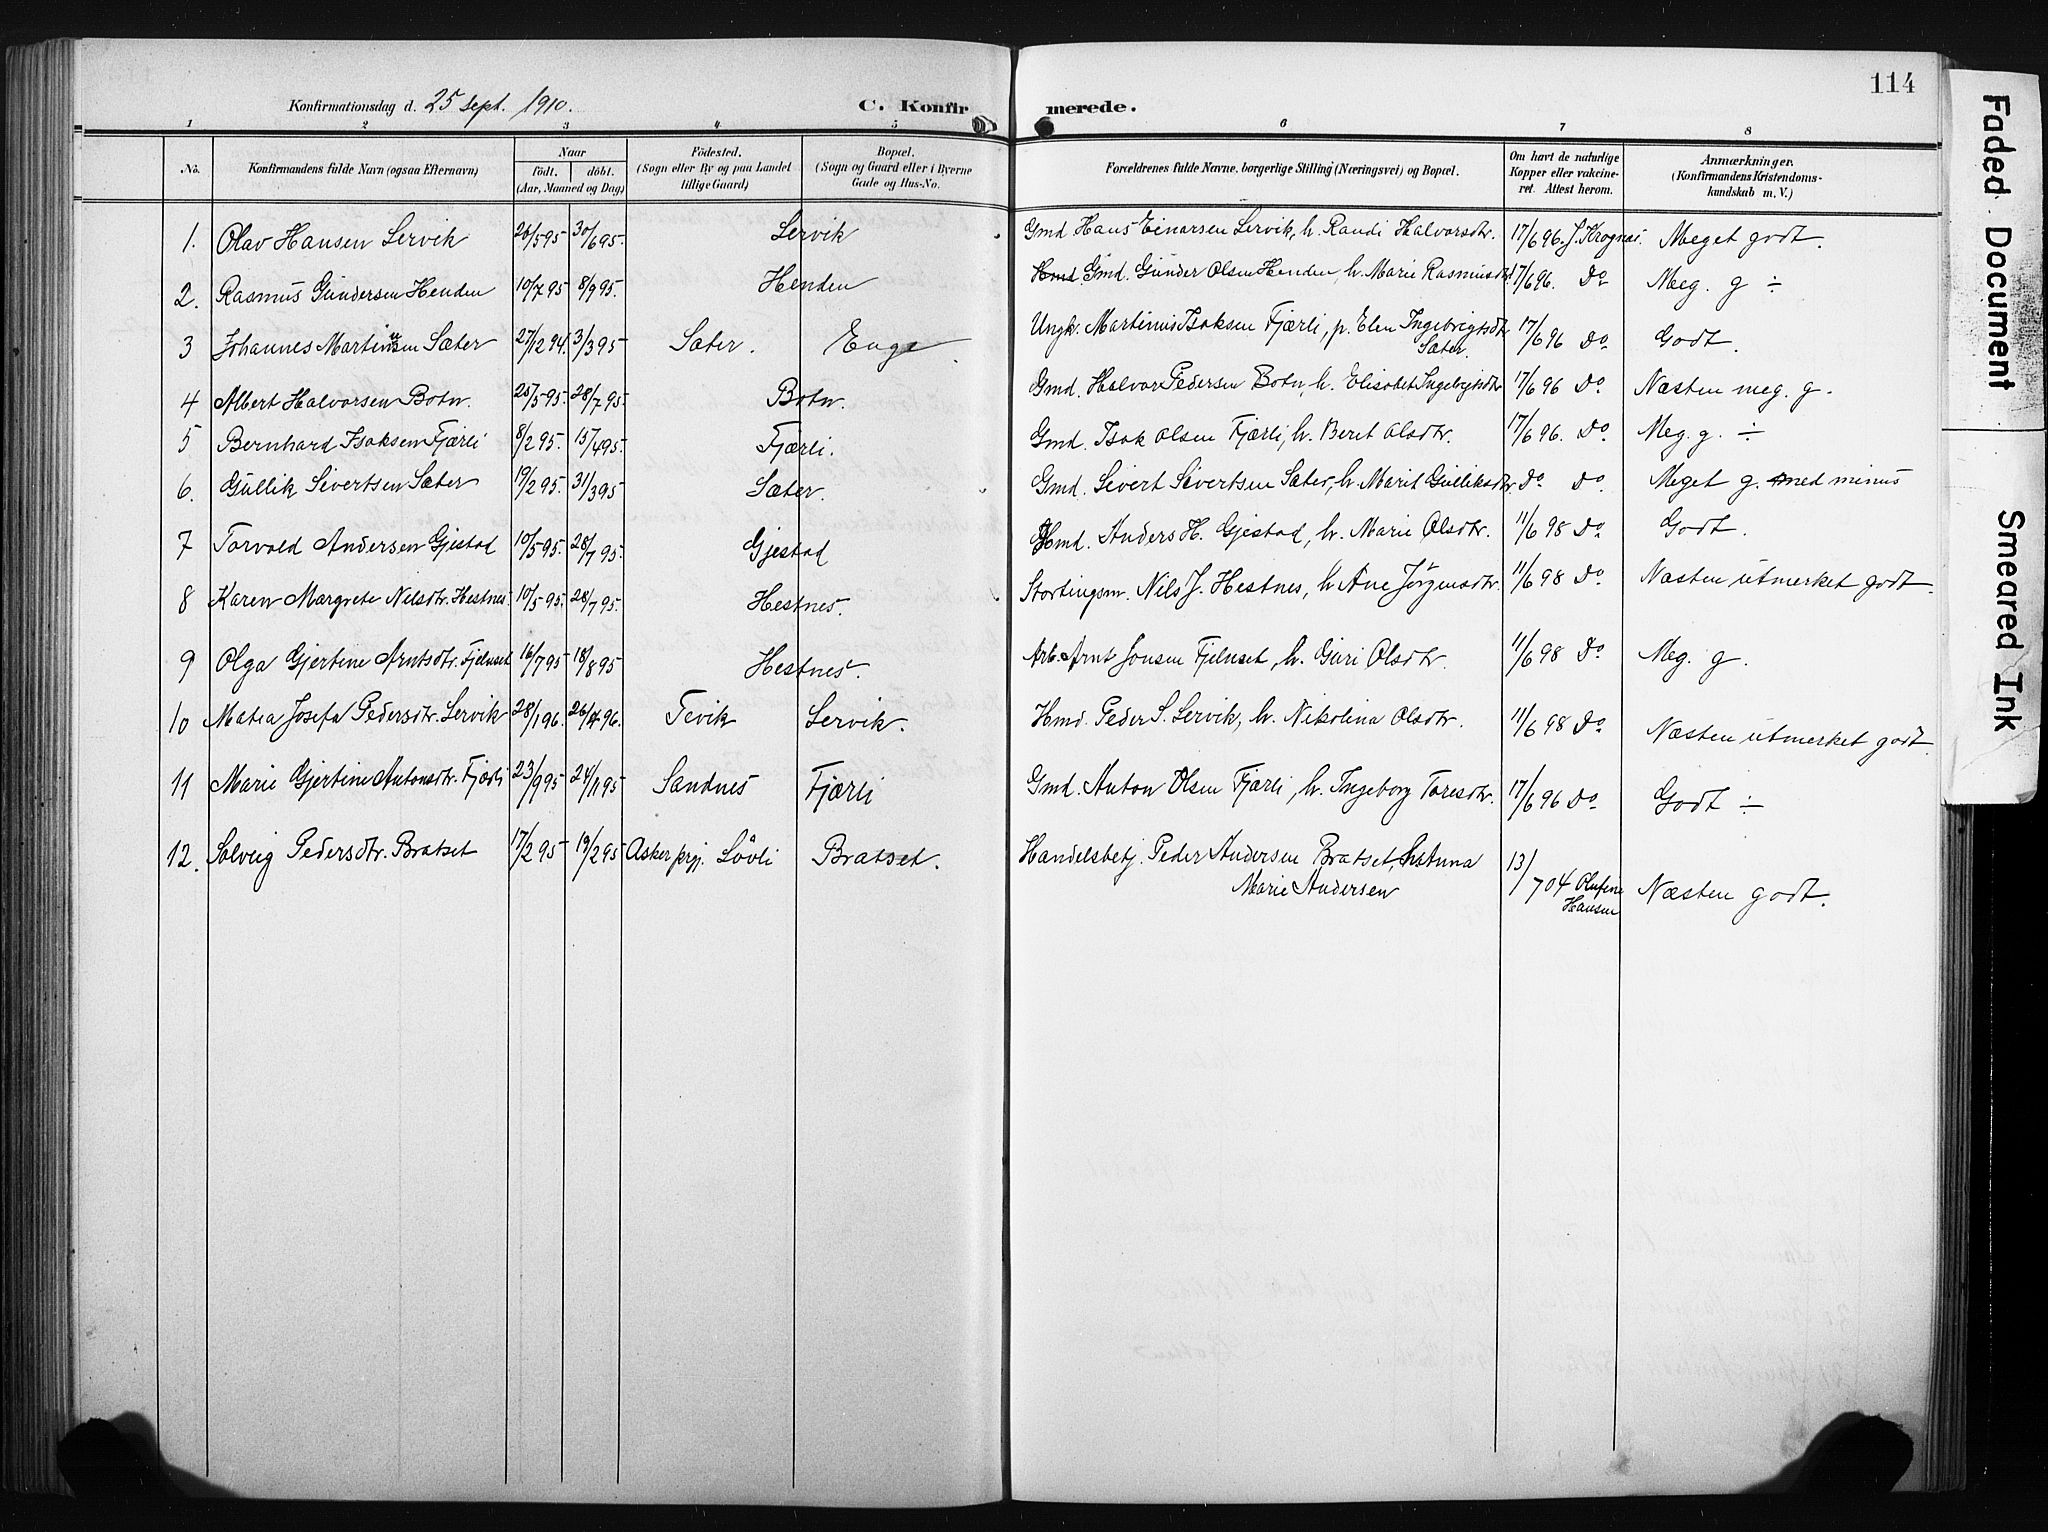 114
Konfirmationsdag d. 25 Sept. 1910. C. Konfirmerede.
1 2 3 4 5 6 7 8
No. Konfirmandens fulde Navn (ogsaa Efternavn) Naar födt. döbt. (Aar, Maaned og Dag) Födested. (Sogn eller By og paa Landet tillige Gaard) Bopæl. (Sogn og Gaard eller i Byerne Gade og Hus-No. Forældrenes fulde Navne, borgerlige Stilling (Næringsvei) og Bopæl. Om havt de naturlige Kopper eller vakcineret. Attest herom. Anmærkninger. (Konfirmandens Kristendomskundskab m. V.)
1. Olav Hansen Lervik 26/5 95 30/6 95. Lervik Gmd. Hans Einarsen Lervik, h. Randi Halvorsdtr. 17/6 96. J. Krognæs. Meget godt.
2. Rasmus Gundersen Henden 10/7 95 8/9 95. Henden Hmd Gmd. Gunder Olsen Henden, h. Marie Rasmusdtr 17/6 96. Do Meg. g ÷
3 Johannes Martinusen Sæter 27/12 94. 3/3 95 Sæter. Enge. Ungk. Martinus Isaksen Fjærli, p. Elen Ingebrigtsdtr Sæter. 17/6 96 Do Godt.
4 Albert Halvorsen Botn. 25/5 95. 28/7 95. Botn. Gmd. Halvor Pedersen Botn, h. Elisabet Ingebrigtsdtr 17/6 96 Do Næsten meg. g.
5 Bernhard Isaksen Fjærli 8/2 95. 15/4 95. Fjærli. Gmd. Isak Olsen Fjærli, h. Beret Olsdtr. 17/6 96. Do. Meg. g. ÷
6. Gullik Sivertsen Sæter 19/2 95. 31/3 95 Sæter. Gmd. Sivert Sivertsen Sæter, h. Marit Gulliksdtr. Do Do. Meget g. med minus
7 Torvald Andersen Gjestad 10/5 95. 28/7 95. Gjestad Hmd. Anders H. Gjestad, h. Marie Olsdtr. 11/6 98 Do Godt.
8 Karen Margrete Nilsdtr. Hestnes. 10/5 95. 28/7 95. Hestnes. Stortingsm. Nils J. Hestnes, h Ane Jörgensdtr. 11/6 98 Do Næsten utmerket godt.
9 Olga Gjertine Arntsdtr. Fjelnset 16/7 95 18/8 95 Hestnes. Arb. Arnt Jonsen Fjelnset, h. Guri Olsdtr. 11/6 98 Do Meg. g.
10 Matea Josefa Pedersdtr. Lervik 28/1 96. 26/4 96. Tevik Lervik. Hmd. Peder S. Lervik, h. Nikolina Olsdtr. 11/6 98 Do Næsten utmerket godt.
11 Marie Gjertine Antonsdtr. Fjærli 23/9 95 24/11 95 Sandnes Fjærli Gmd. Anton Olsen Fjærli, h. Ingeborg Toresdtr. 17/6 96 Do Godt ÷
12. Solveig Pedersdtr. Bratset 17/2 95 19/2 95 Asker prgj. Lövli Bratset. Handelsbetj. Peder Andersen Bratset, h. Anna Marie Andersen 13/7 04 Olufine Hansen Næsten godt.
Faded Document
Smeared Ink